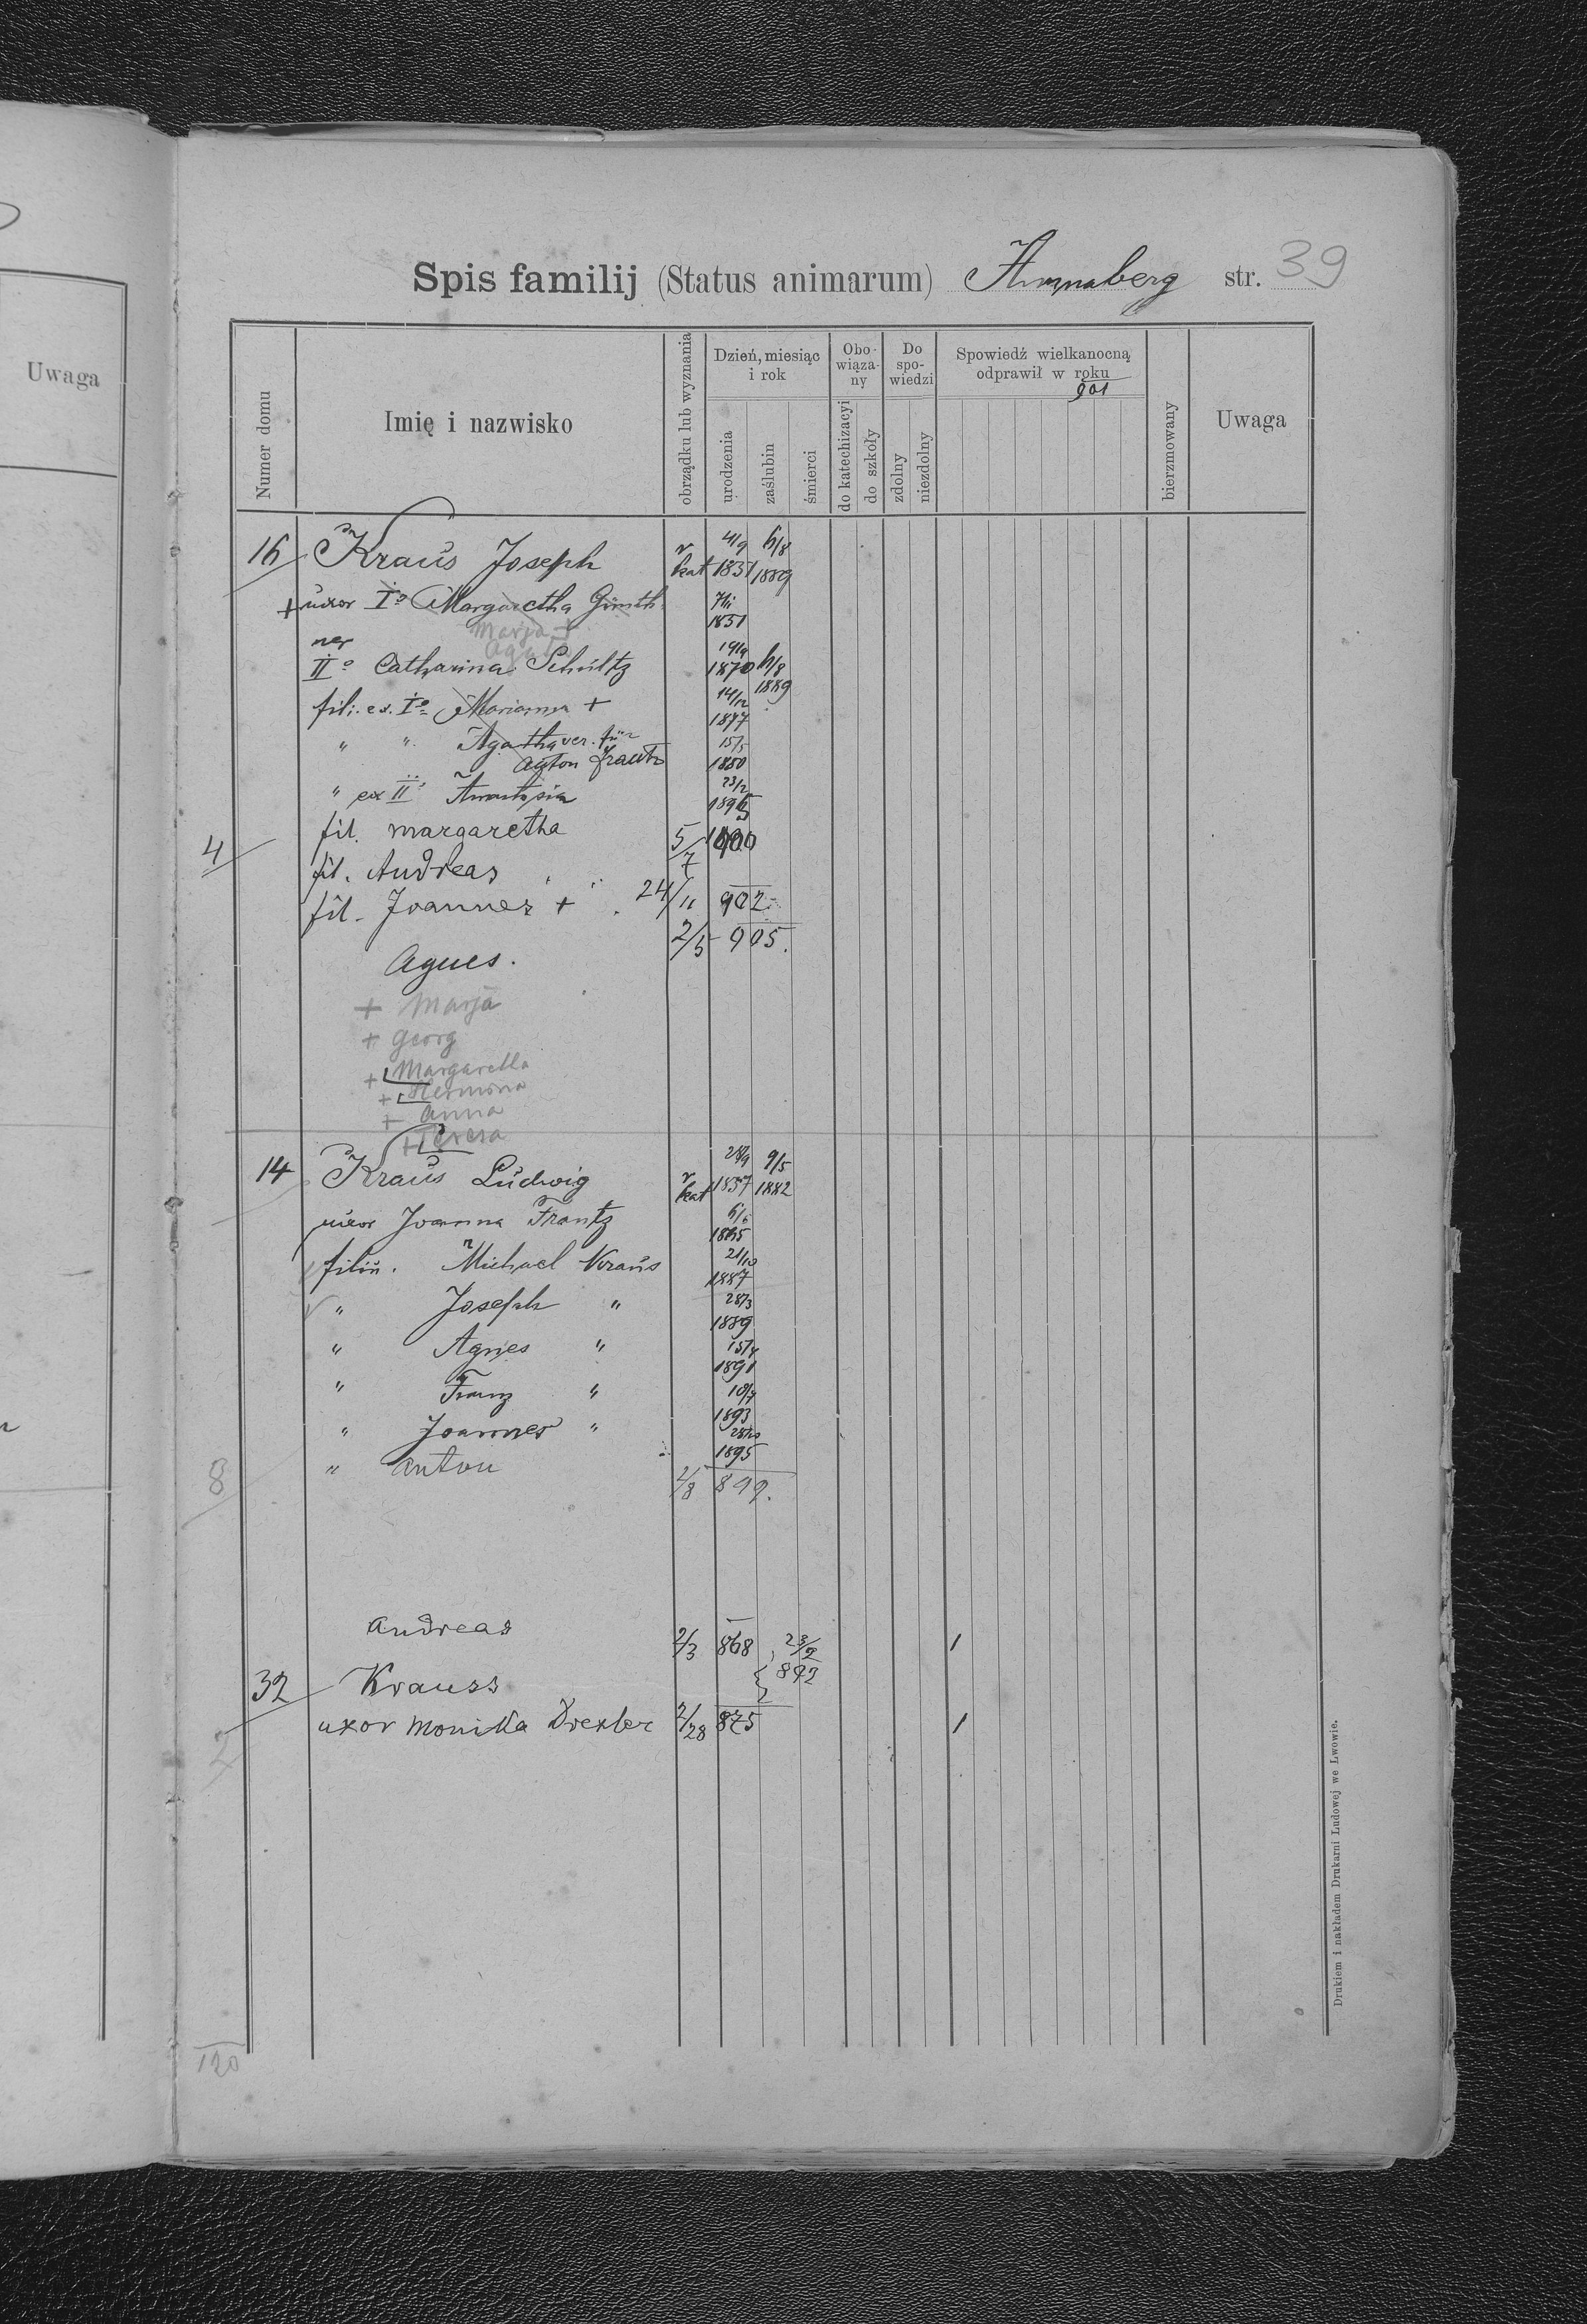 Uwaga
Spis familij (Status animarum) Annaberg str. 39
Numer domu
Imię i nazwisko
obrządku lub wyznania
Dzień, miesiąc i rok
urodzenia
zaślubin
śmierci
Obowiązany
do katechizacyi
do szkoły
Do spowiedzi
zdolny
niezdolny
Spowiedź wielkanocną odprawił w roku
901
bierzmowany
Uwaga
16 Kraus Joseph r kat 4/9 1851 6/8 1889
+ uxor I° Margaretha Günth 7/11 1851
ner
Marja +
Agata
II° Catharina Schültz 19/4 1870 6/8 1889
fili. ex. I° Marianna + 14/12 1877
" " Agatha ver. für 15/5 1880
Anton Frantz
" ex II° Anastasia 23/2 1895
fil. margaretha 5/7 1900
4
fil. Andreas 24/11 902
fil. Joannes + 2/5 905.
Agnes.
+ Marja
+ Georg
+ Margaretta
+ Hermina
+ Anna
+ Teresa
14 Kraus Ludwig r kat 1857 9/5 1882
uxor Joanna Frantz 1865
filii. Michael Kraus 21/10 1887
" Joseph " 28/3 1889
" Agnes " 15/4 1891
" Franz " 10/7 1893
" Joannes " 28/10 1895
" Anton 2/8 899.
8
Andreas 2/3 868 23/2 892 1
32 Krauss
uxor Monika Drexler 2/28 875 1
2
120
Drukiem i nakładem Drukarni Ludowej we Lwowie.